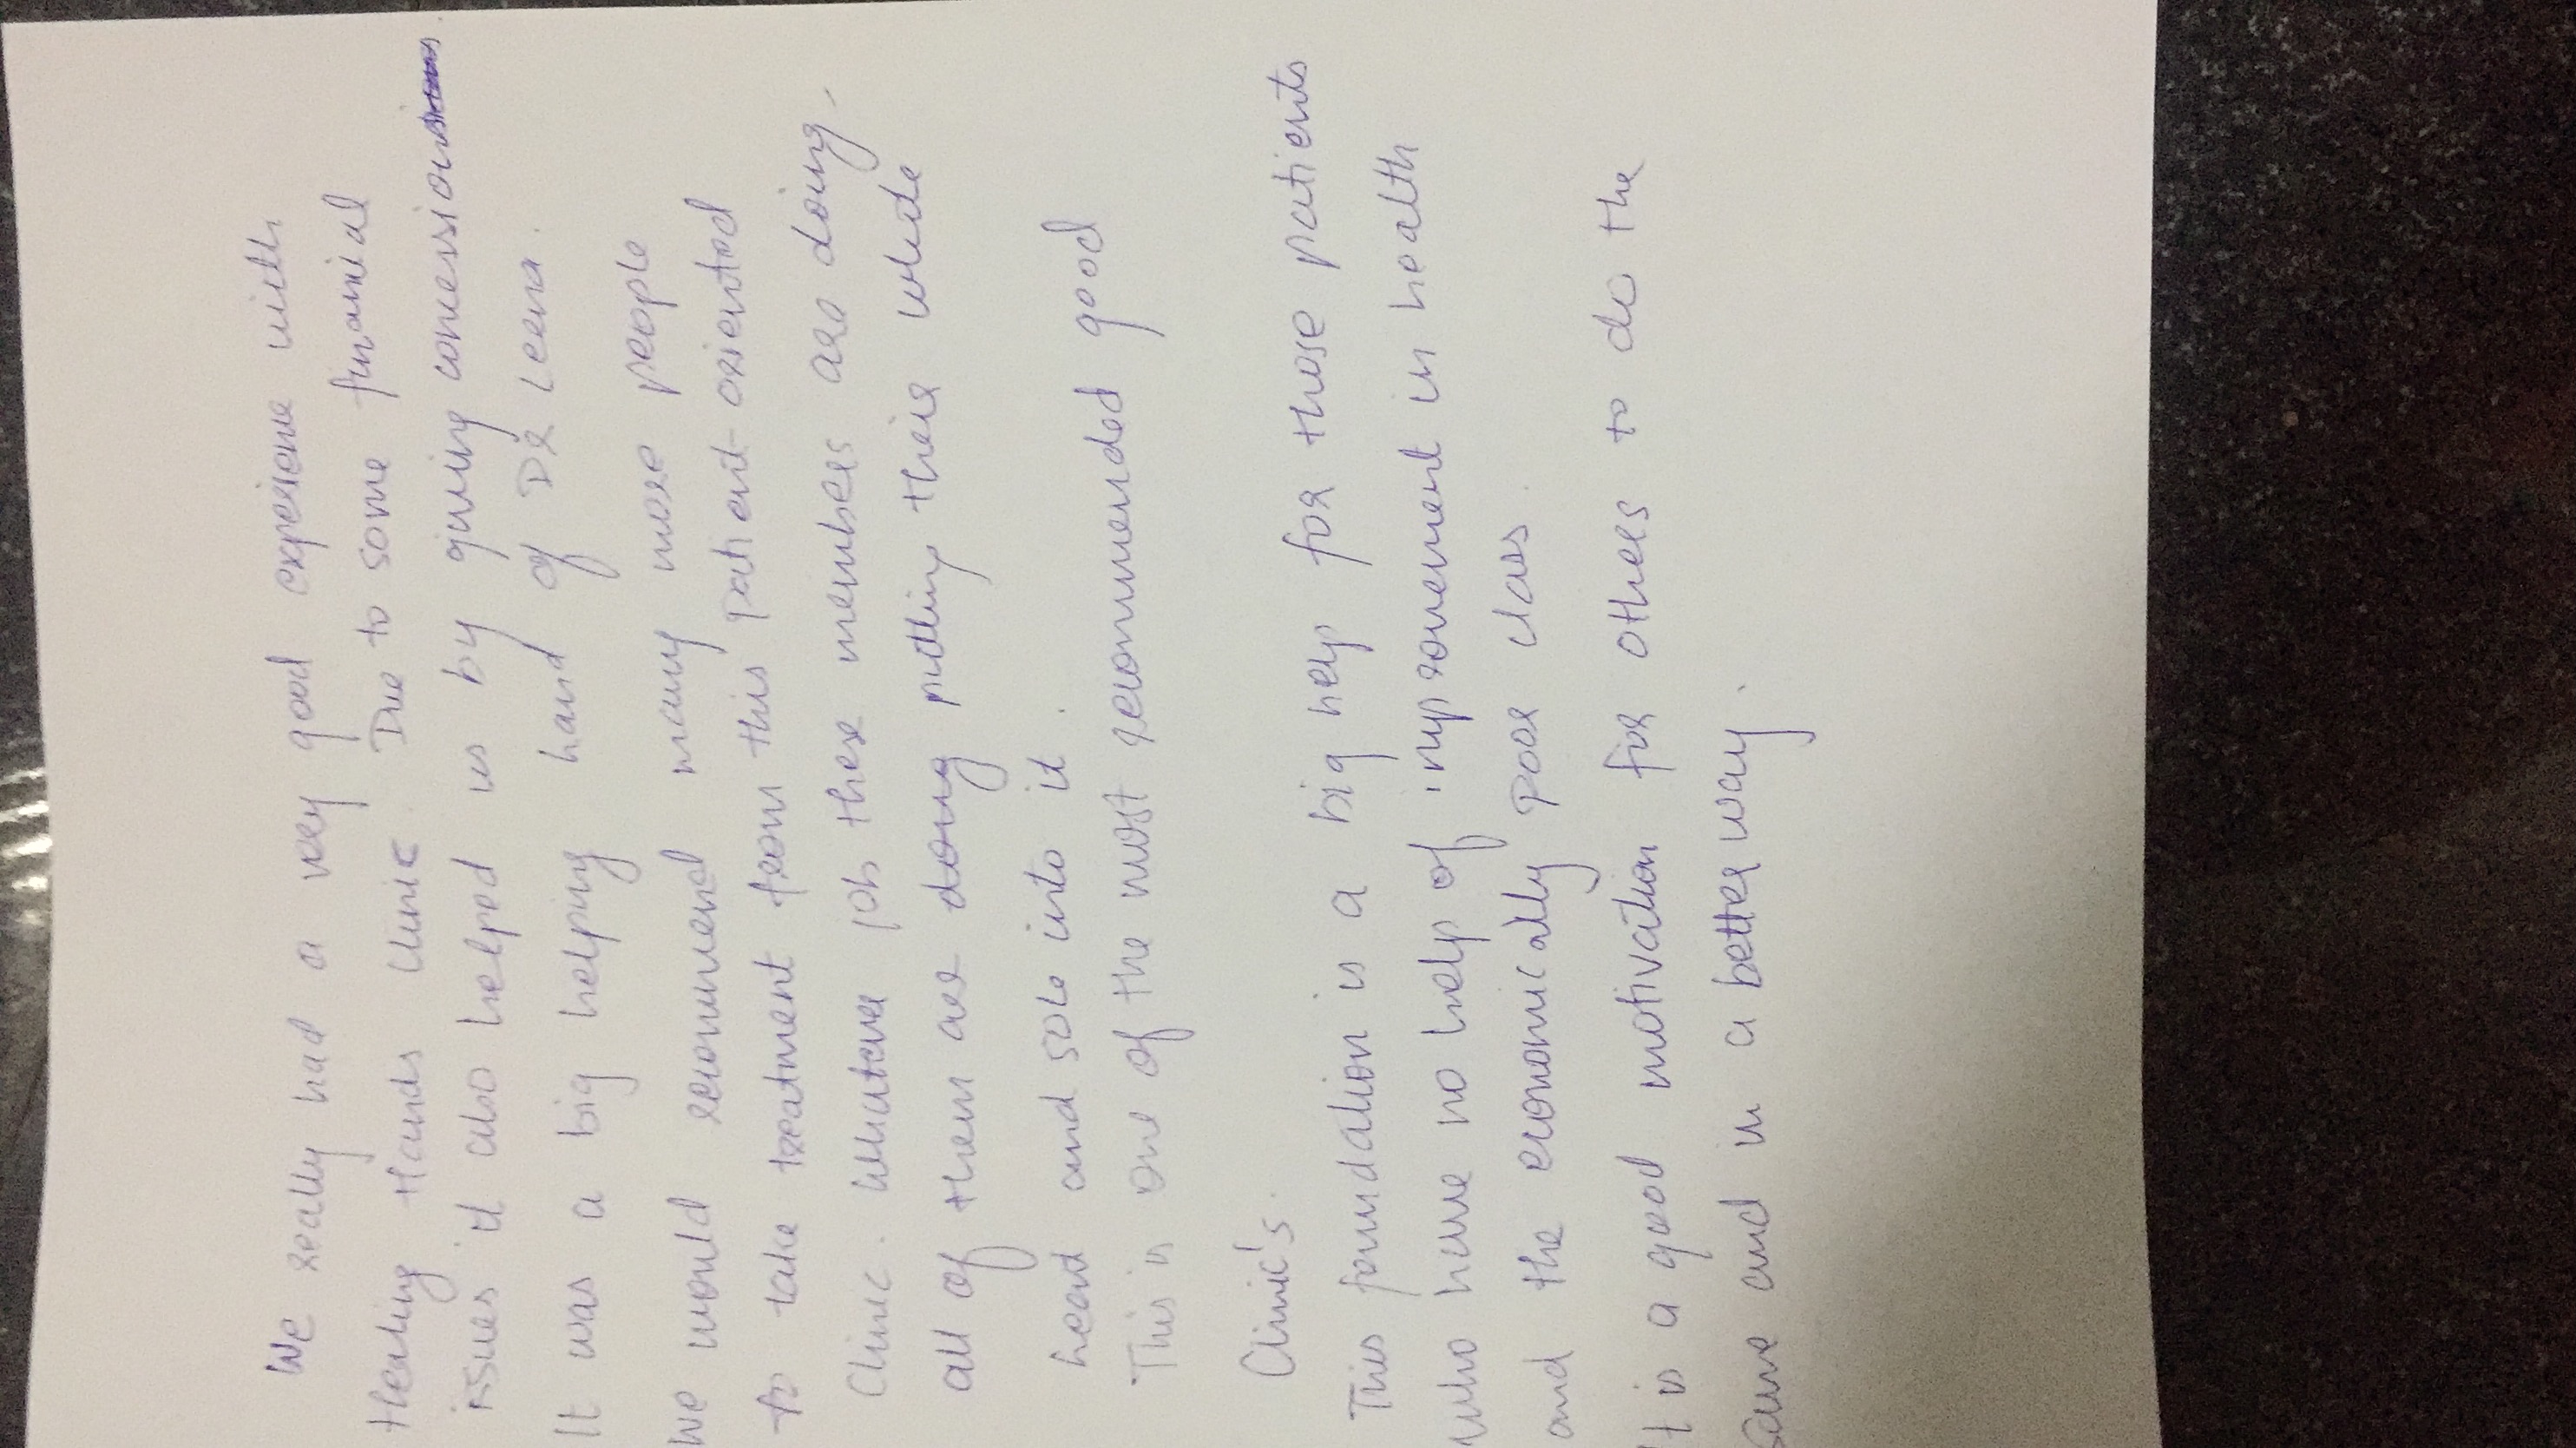 We really had a very good experience with
Healing Hands Clinic. Due to some financial
issues it also helped us by giving concession
It was a big helping hand of DR Leena.
We would recommend many more people
to take treatment from this patient-oriented
Clinic. Whatever job these members are doing,
all of them are doing putting their whole
heart and sole into it.
This is one of the most recommended good
Clinic's.
This foundation is a big help for those patients
who have no help of improvement in health
and the economically poor class.
It is a good motivation for others to do the
same and in a better way.